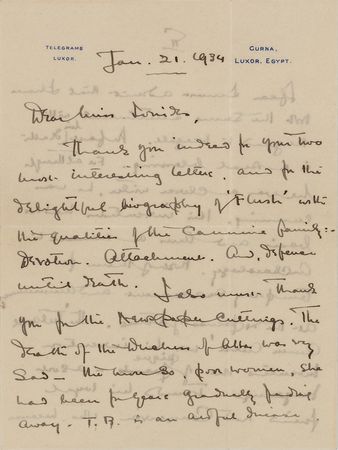 TELEGRAMS
LUXOR.
GURNA,
LUXOR, EGYPT.
Jan. 21. 1934
Dear Miss
Thank you indeed for your two
most interesting letters, and for the
delightful biography of 'Flush' with
the qualities of the Canine family:-
Devotion. Attachment. And, defence
until death. I also must thank
you for the Newspaper Cuttings. The
death of the Duchess of Alba was very
sad – the more so, poor women, she
had been for years gradually fading
away. T.B. is an awful disease